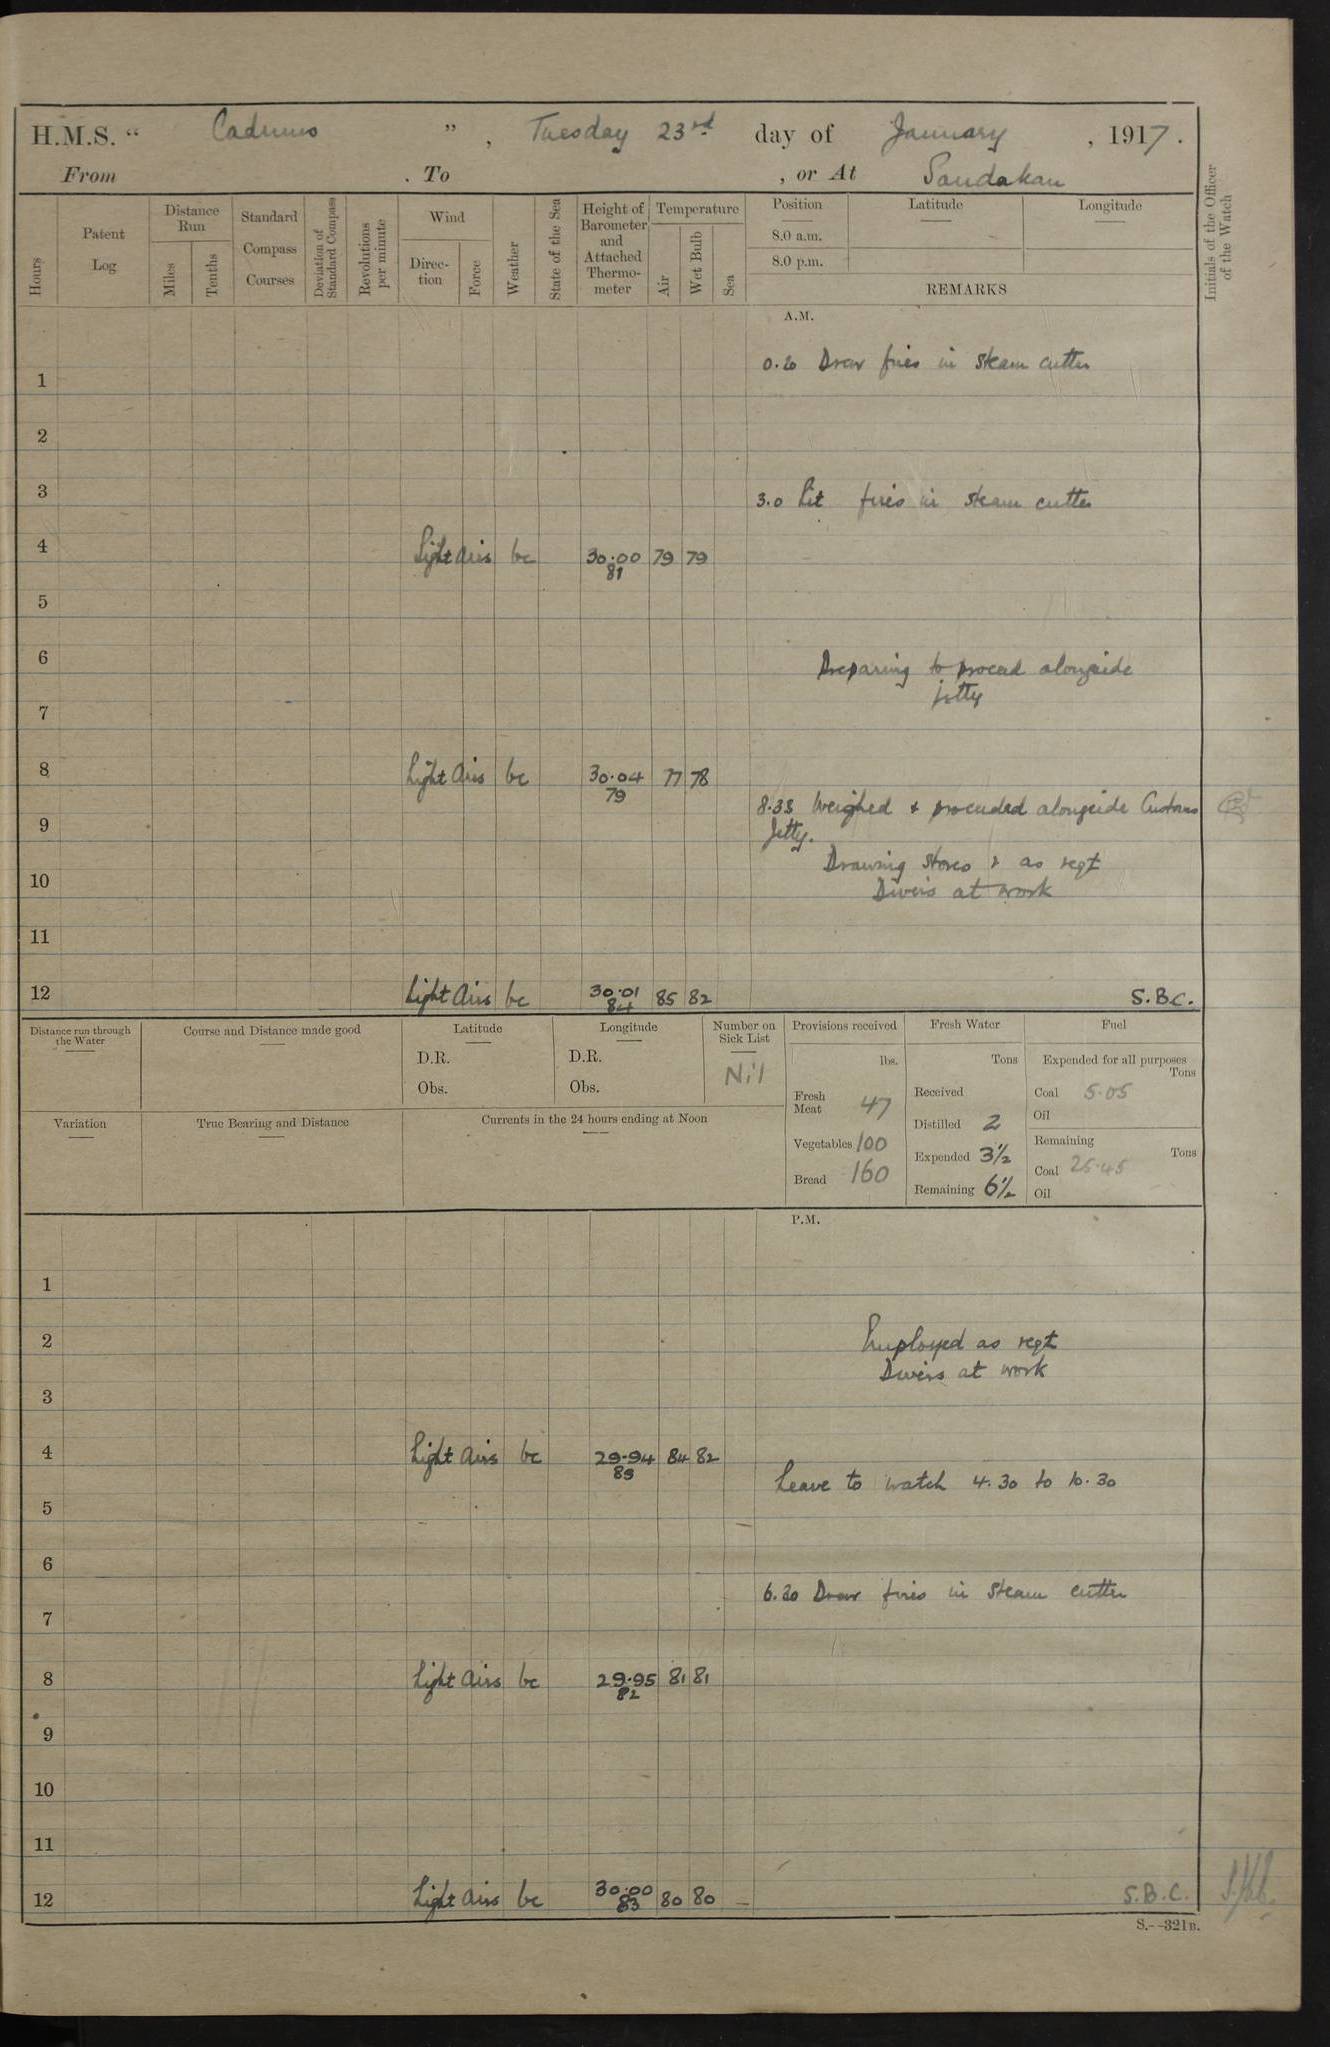 H.M.S. “ Cadmus ”, Tuesday 23rd day of January, 1917.
From . To , or At Sandakan
Hours
Patent Log
Distance Run
Miles
Tenths
Standard Compass Courses
Deviation of Standard Compass
Revolutions per minute
Wind
Direction
Force
Weather
State of the Sea
Height of Barometer and Attached Thermometer
Temperature
Air
Wet Bulb
Sea
Position
Latitude
Longitude
8.0 a.m.
8.0 p.m.
REMARKS
Initials of the Officer of the Watch
A.M.
0.20 Draw fires in steam cutter
1
2
3
3.0 Lit fires in steam cutter
4 Light airs bc 30.00 79 79
81
5
6
Preparing to proceed alongside
jetty
7
8 Light airs bc 30.04 77 78
79
8.33 Weighed & proceeded alongside Customs
Jetty.
9
Drawing stores & as reqt
10
Divers at work
11
12 Light airs bc 30.01 85 82 S.B.C.
84
Distance run through the Water
Course and Distance made good
Latitude
D.R.
Obs.
Longitude
D.R.
Obs.
Number on Sick List
Nil
Provisions received
lbs.
Fresh Meat 47
Vegetables 100
Bread 160
Fresh Water
Tons
Received
Distilled 2
Expended 3½
Remaining 6½
Fuel
Expended for all purposes
Tons
Coal 5.05
Oil
Remaining
Tons
Coal 25.45
Oil
Variation
True Bearing and Distance
Currents in the 24 hours ending at Noon
P.M.
1
2 Employed as reqt
Divers at work
3
4 Light airs bc 29.94 84 82
85
Leave to watch 4.30 to 10.30
5
6
6.30 Draw fires in steam cutter
7
8 Light airs bc 29.95 81 81
82
9
10
11
12 Light airs bc 30.00 80 80 S.B.C.
83
S.—321B.